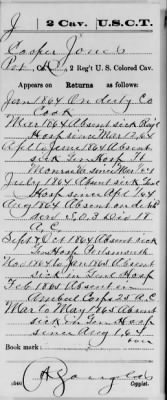 J 2 Cav. U.S.C.T.
Cooper Jones
Pvt, Co. K, 2 Reg't U. S. Colored Cav.
Appears on
Returns as follows:
Jan 1864 On duty Co
Cook
Mar 1864 Absent sick Reg't
Hosp since Mar 12, 64
Apl to June 1864 Absent
sick Gen Hosp Ft
Monroe Va since Mar
July 1864 Absent sick Gen
Hosp since Apl 1 64
Aug 1864 Absent on det
serv S.O. 3 Div 18
A.C.
Sept & Oct 1864 Absent sick
Gen Hosp Portsmouth
Nov 1864 to Jan 1865 Absent
sick in Gen Hosp
Feb 1865 Absent in
Ambul Corps 25 A.C.
Mar to May 1865 Absent
sick in Gen Hosp
since Aug 1, 64
over
Book mark:
(546)
Copyist.